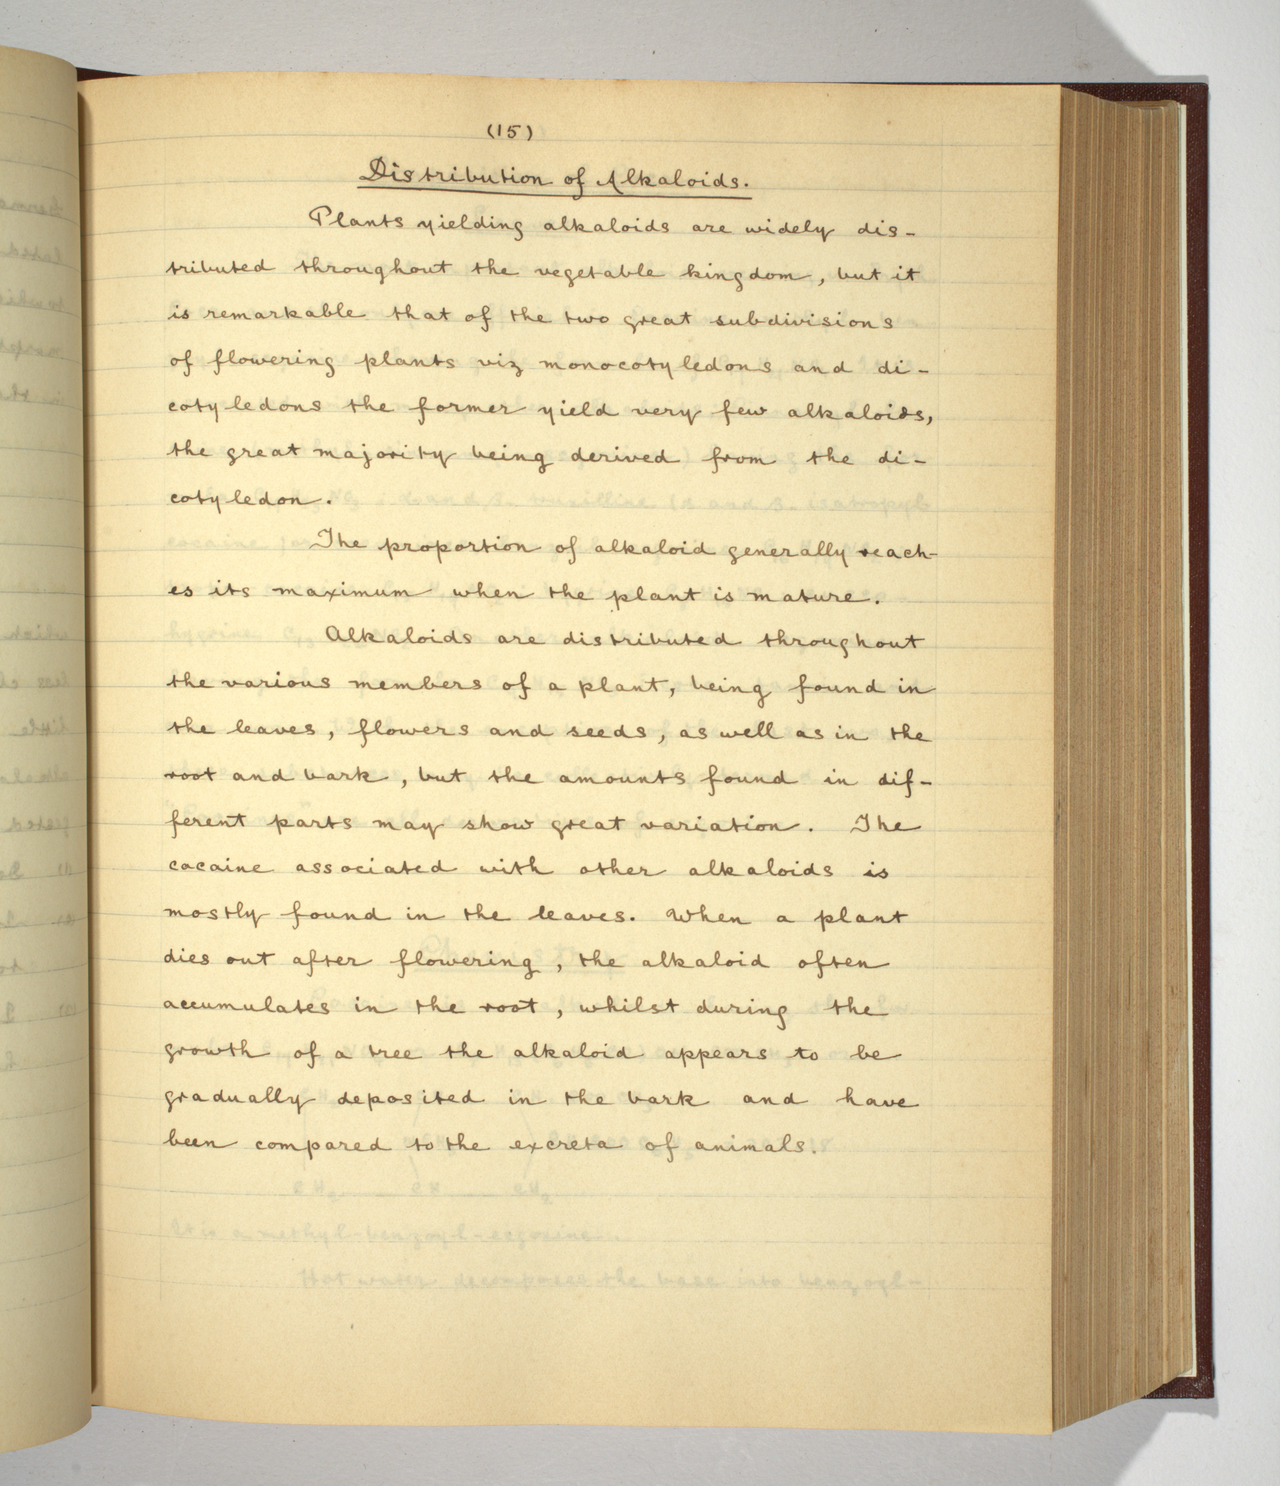 (15)
Distribution of Alkaloids.
Plants yielding alkaloids are widely dis-
tributed throughout the vegetable kingdom, but it
is remarkable that of the two great subdivisions
of flowering plants viz monocotyledons and di-
cotyledons the former yield very few alkaloids,
the great majority being derived from the di-
cotyledon.
The proportion of alkaloid generally reach-
es its maximum when the plant is mature.
Alkaloids are distributed throughout
the various members of a plant, being found in
the leaves, flowers and seeds, as well as in the
root and bark, but the amounts found in dif-
ferent parts may show great variation. The
cocaine associated with other alkaloids is
mostly found in the leaves. When a plant
dies out after flowering, the alkaloid often
accumulates in the root, whilst during the
growth of a tree the alkaloid appears to be
gradually deposited in the bark and have
been compared to the excreta of animals.